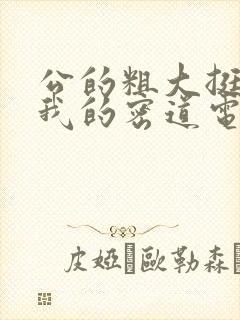 公的粗大挺
我的密道電
皮婭 歐勒森